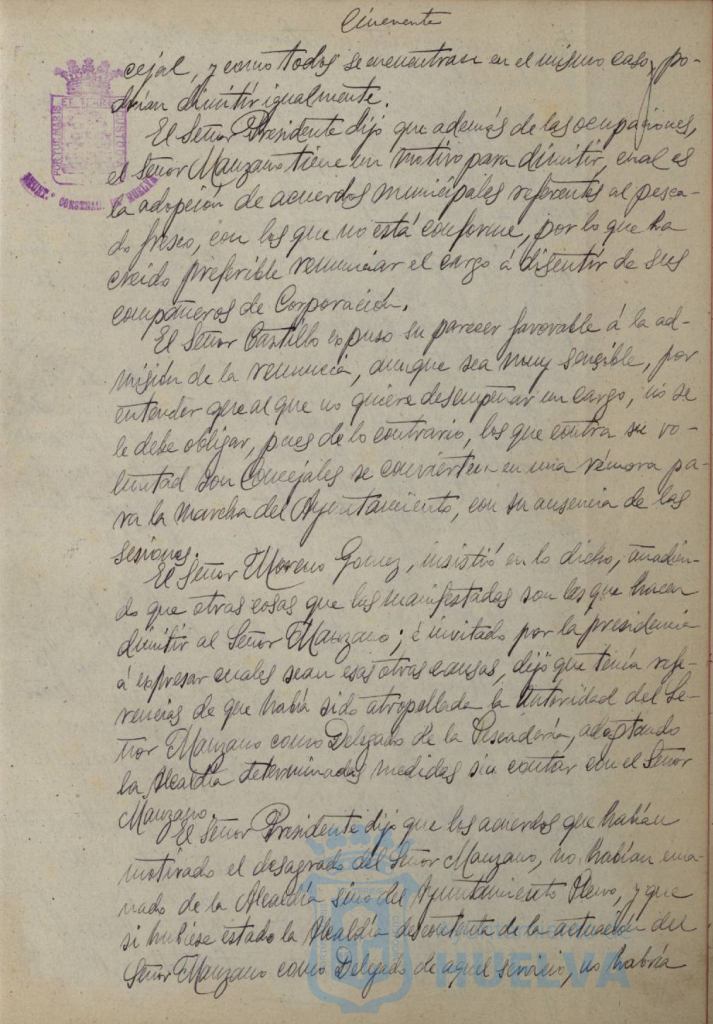 Cincuenta
cejal, y como todos se encuentran en el mismo caso, po-
drían dimitir igualmente.
El Señor Presidente dijo que además de las ocupaciones,
el Señor Manzano tiene un motivo para dimitir, cual es
la adopción de acuerdos municipales referentes al pesca-
do fresco, con los que no está conforme, por lo que ha
creido preferible renunciar el cargo á disentir de sus
compañeros de Corporación.
El Señor Castillo expuso su parecer favorable á la ad-
misión de la renuncia, aunque sea muy sensible, por
entender que al que no quiere desempeñar un cargo, no se
le debe obligar, pues de lo contrario, los que contra su vo-
luntad son Concejales se convierten en una rémora pa-
ra la marcha del Ayuntamiento, con su ausencia de las
sesiones.
El Señor Moreno Gomez, insistió en lo dicho, añadien-
do que otras cosas que las manifestadas son las que hacen
dimitir al Señor Manzano; é invitado por la presidencia
á expresar cuales sean esas otras causas, dijo que tenía refe-
rencias de que había sido atropellada la autoridad del Se-
ñor Manzano como Delegado de la Pescadería, adoptando
la Alcaldía determinadas medidas sin contar con el Señor
Manzano.
El Señor Presidente dijo que los acuerdos que habían
motivado el desagrado del Señor Manzano, no habían ema-
nado de la Alcaldía sino del Ayuntamiento Pleno, y que
si hubiese estado la Alcaldía descontenta de la actuación del
Señor Manzano como Delegado de aquel servicio, no habría
HUELVA